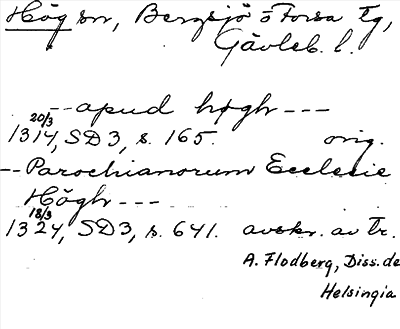 Hög sn, Bergsjö o Forsa tg,
Gävleb. l.
-- apud høgh ---
20/3
1314, SD3, s. 165. orig.
-- Parochianorum Ecclesie
Högh ---
18/3
1324, SD3, s. 641. avskr. av Tr.
A. Flodberg, Diss. de
Helsingia